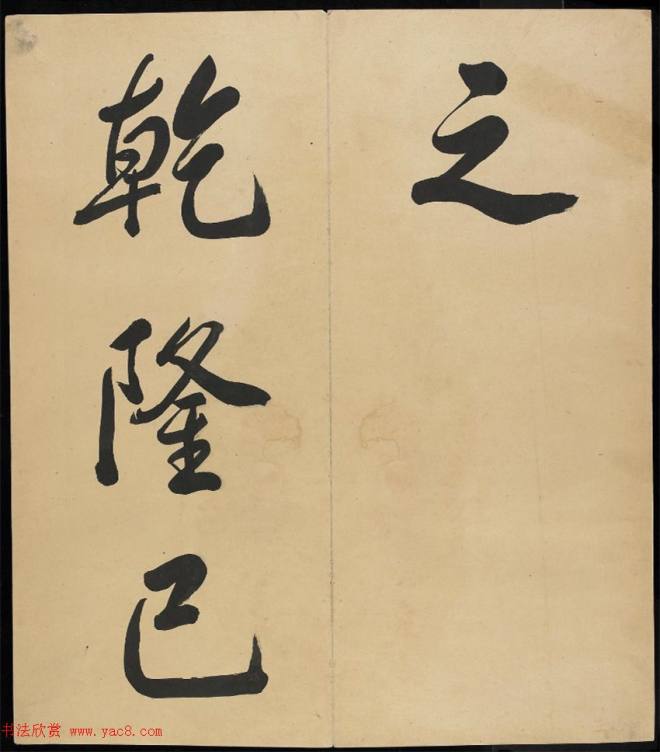 之
乾隆己
书法欣赏 www.yac8.com